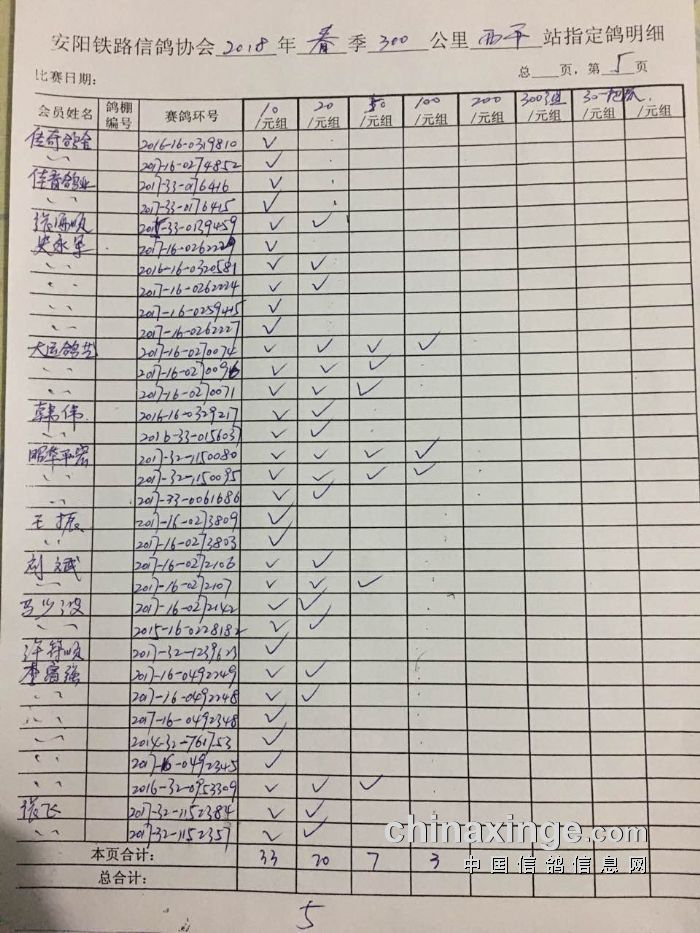 安阳铁路信鸽协会 2018 年 春 季 300 公里 西平 站指定鸽明细
比赛日期: 总 页，第 5 页
会员姓名 鸽棚编号 赛鸽环号 10/元组 20/元组 50/元组 100/元组 200/元组 300/元组 /元组 /元组
佳奇鸽舍 2016-16-0319810 ✓
〃 2017-16-0274852 ✓
佳音鸽业 2017-33-0176416 ✓
2017-33-0176415 ✓
-33-0139459 ✓ ✓
史永军 ✓
〃 2016-16-0320581 ✓ ✓
〃 2017-16-0262224 ✓ ✓
〃 2017-16-0259415 ✓
〃 2017-16-0262227 ✓
2017-16-0270074 ✓ ✓ ✓ ✓
〃 ✓ ✓ ✓
〃 2017-16-0270071 ✓ ✓ ✓
韩伟 2016-16-0329217 ✓ ✓
〃 2016-33-0156037 ✓ ✓
昭华平宏 2017-32-1150080 ✓ ✓ ✓ ✓
〃 2017-32-1150095 ✓ ✓ ✓ ✓
〃 2017-33-0061686 ✓ ✓
王振 2017-16-0273809 ✓
〃 2017-16-0273803 ✓
刘斌 2017-16-0272106 ✓ ✓
〃 2017-16-0272107 ✓ ✓ ✓
2017-16-0272142 ✓ ✓
〃 2015-16-0228182 ✓ ✓
2017-32-1239623 ✓
李富强 2017-16-0492249 ✓ ✓
〃 2017-16-0492248 ✓ ✓
〃 2017-16-0492348 ✓
〃 2014-32-761753 ✓
〃 2017-16-0492345 ✓
〃 2016-32-0953309 ✓ ✓ ✓
张飞 2017-32-1152384 ✓ ✓
〃 2017-32-1152357 ✓ ✓
本页合计: 33 20 7 3
总合计:
5
chinaxinge.com
中国信鸽信息网